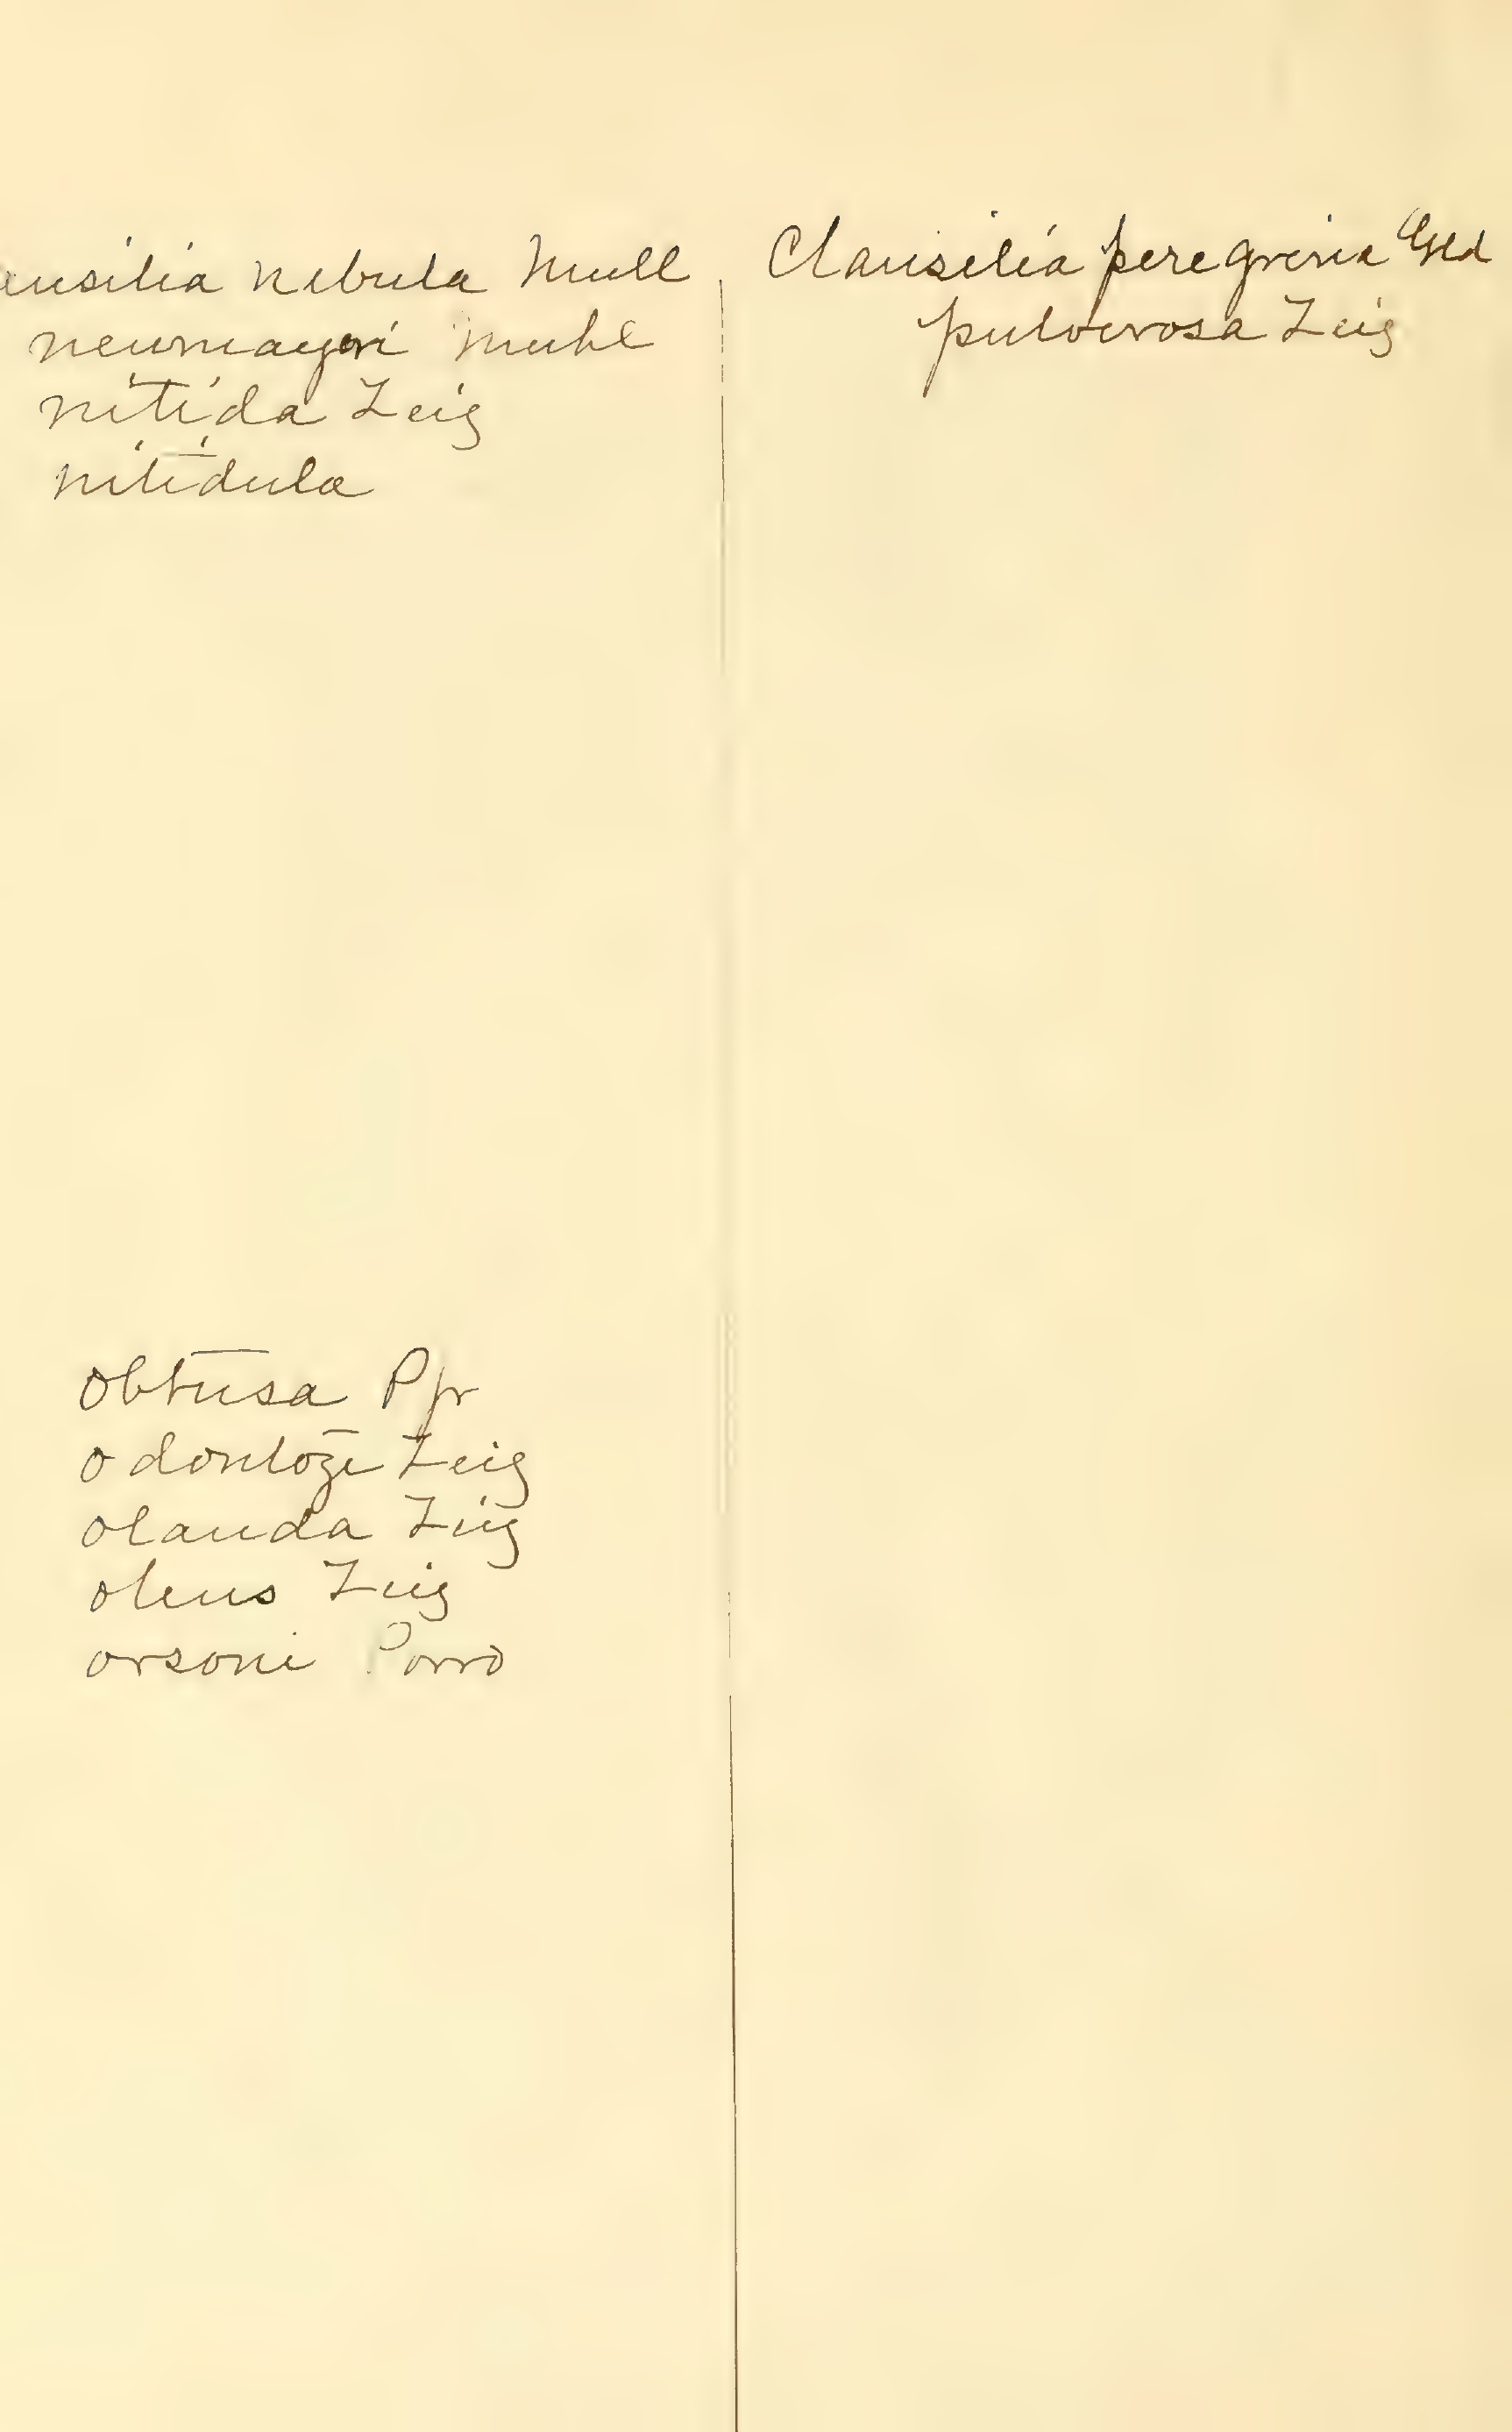 ausilia nebula Mull
neumayeri Muhl
nitida Zeig
nitidula
obtusa Pfr
odontoze Zeig
olanda Zeig
olens Zeig
orsoni Porro
Clausilia peregrina Gld
pulverosa Zeig